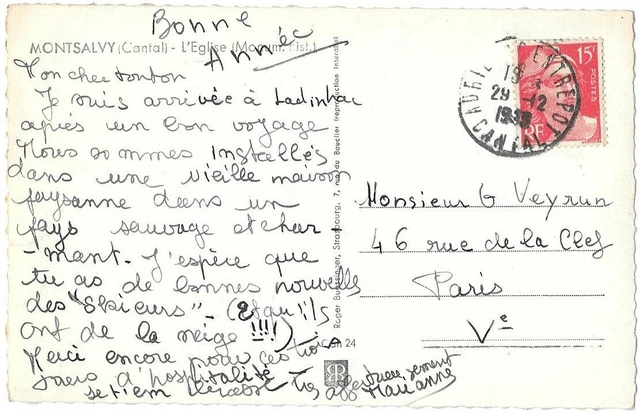 Bonne
Année
MONTSALVY (Cantal) - L'Eglise (Monum. Hist.)
Mon cher tonton
Je suis arrivée à Ladinhac
après un bon voyage
Nous sommes installés
dans une vieille maison
paysanne dans un
pays sauvage et char
-mant. J'espère que
tu as de bonnes nouvelles
des "Skieurs" - (et qu'ils
ont de la neige !!!)
Merci encore pour ces trois
jours d'hospitalité
Très affectueusement
Marianne
Strasbourg, 7, rue du Bouclier (reproduction interdite)
24
15F
POSTES
RF
ENTREPOT
18
29 -12
CANTAL
Monsieur G Veyrun
46 rue de la Clef
Paris
Ve